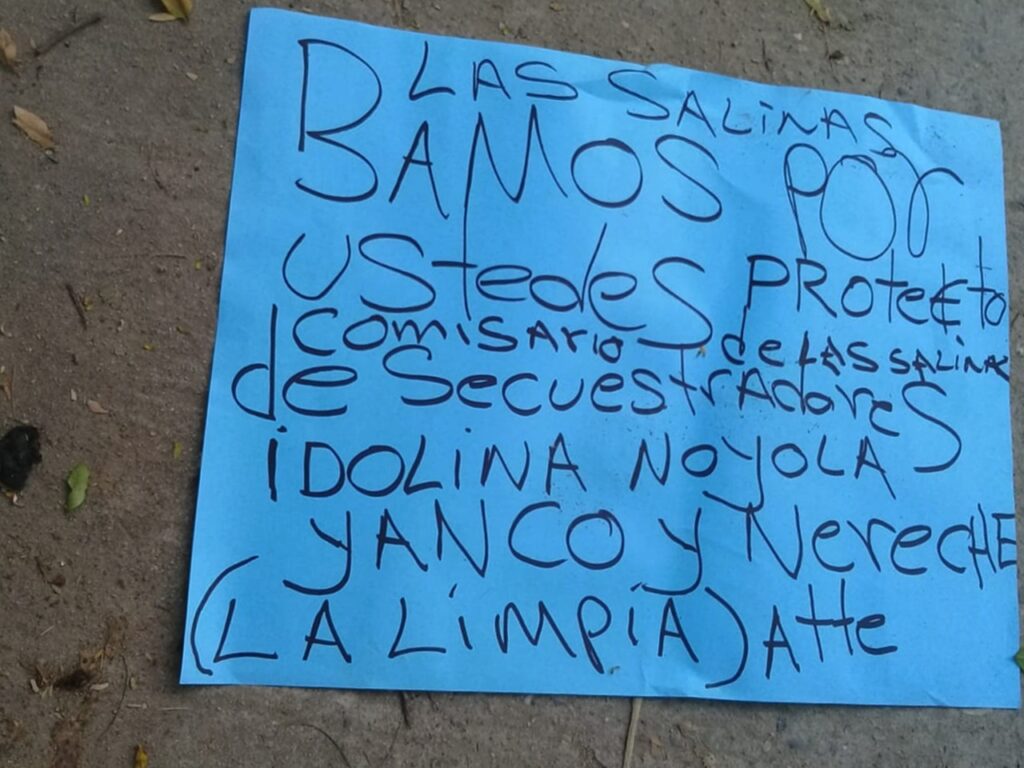 LAS SALINAS
BAMOS POr
UStedeS PROtectO
COMISARIO de LAS SALINAS
de SecUestradoreS
iDOLiNA NOYOLA
YANCO y NerecHE
(LA LiMPiA) Atte